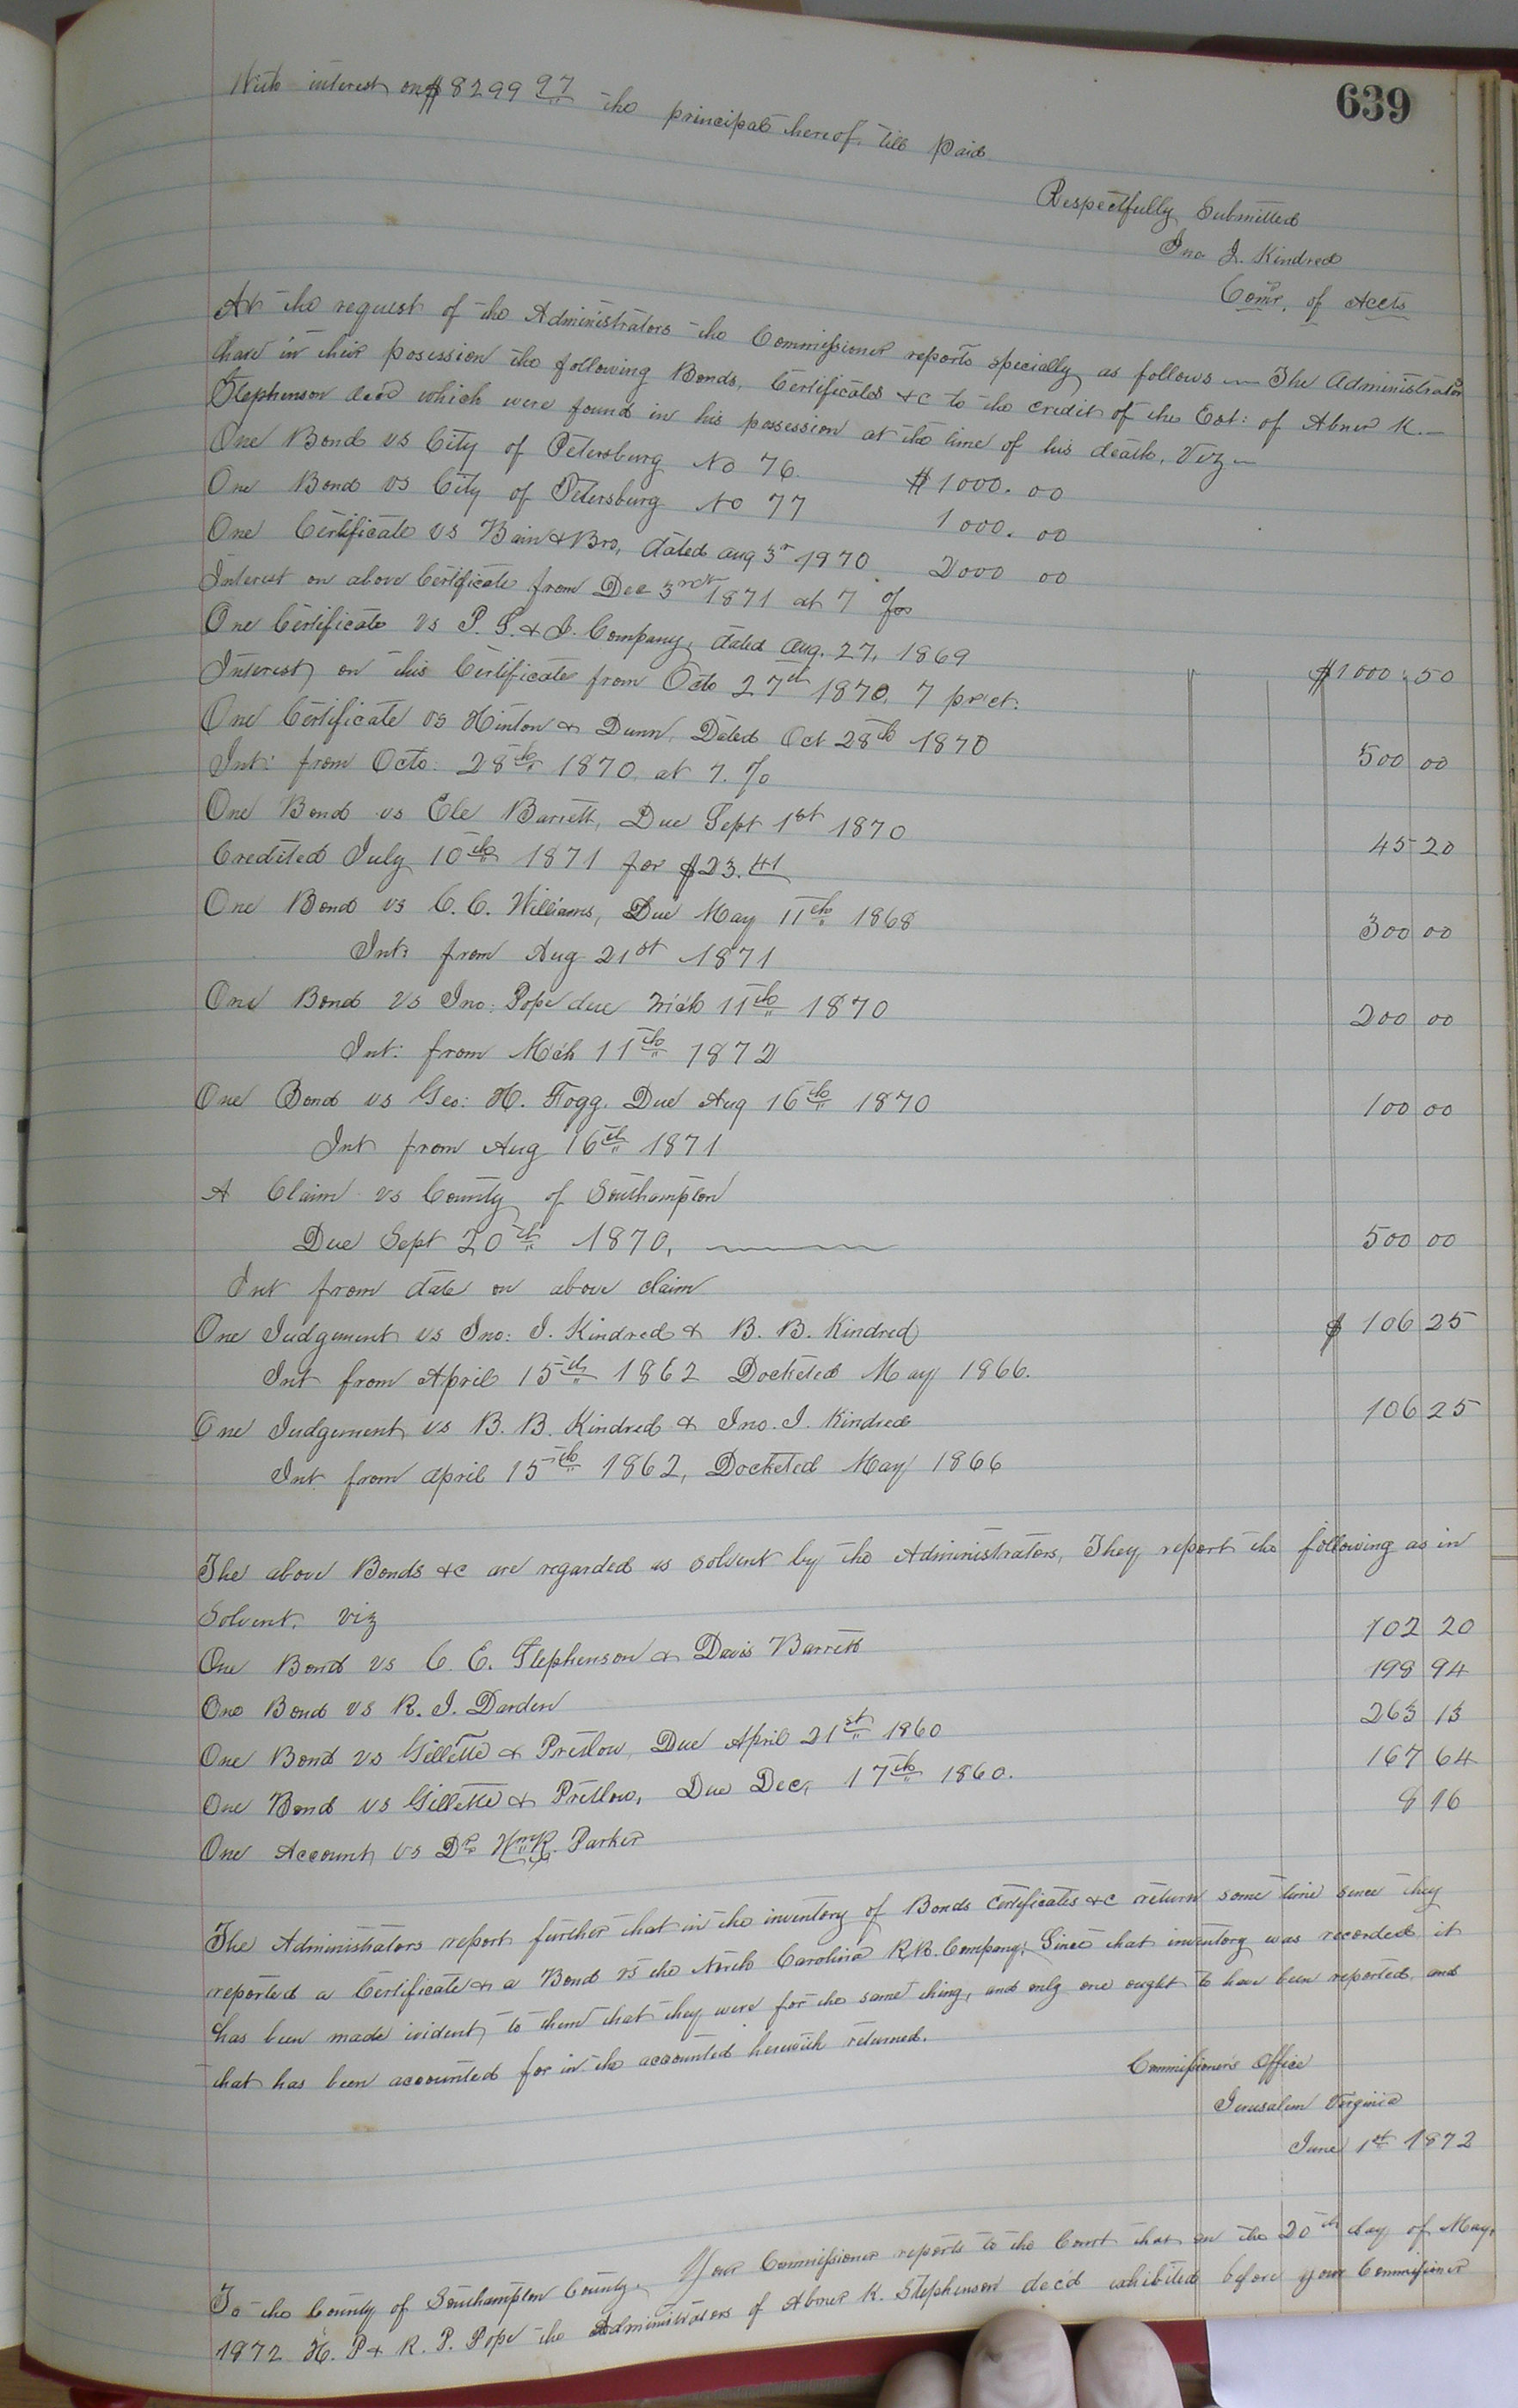 639
With interest on $8299 97 the principal hereof till paid
Respectfully Submitted
Jno J. Kindred
Comr. of Accts
At the request of the Administrators the Commissioner reports specially as follows — The Administrators
have in their posession the following Bonds, Certificates &c to the credit of the Est: of Abner K. —
Stephenson decd which were found in his possession at the time of his death, Viz —
One Bond vs City of Petersburg No 76. $1000. 00
One Bond vs City of Petersburg No 77 1000. 00
One Certificate vs Bain & Bro, dated aug 3r 1970 2000 00
Interest on above Certificate from Dec 3rd 1871 at 7 %
One Certificate vs P. S. & I. Company, dated Aug. 27, 1869 $1000. 50
Interest on this Certificate from Octo 27th 1870, 7 pr ct.
One Certificate vs Hinton & Dunn, Dated Oct 28th 1870 500 00
Int: from Octo: 28th 1870 at 7. %
One Bond vs Ele Barrett, Due Sept 1st 1870 45 20
Credited July 10th 1871 for $23.41
One Bond vs C. C. Williams, Due May 11th 1868 300 00
Int: from Aug 21st 1871
One Bond vs Jno: Pope due Mch 11th 1870 200 00
Int: from Mch 11th 1872
One Bond vs Geo: H. Fogg. Due Aug 16th 1870 100 00
Int from Aug 16th 1871
A Claim vs County of Southampton
Due Sept 20th 1870, 500 00
Int from date on above claim
One Judgement vs Jno: J. Kindred & B. B. Kindred $ 106 25
Int from April 15th 1862 Docketed May 1866.
One Judgement vs B. B. Kindred & Jno. J. Kindred 106 25
Int from April 15th 1862, Docketed May 1866
The above Bonds &c are regarded as solvent by the Administrators, They report the following as in
Solvent, viz
One Bond vs C. E. Stephenson & Davis Barrett 102 20
One Bond vs R. J. Darden 198 94
One Bond vs Gillette & Pretlow, Due April 21st 1860 263 13
One Bond vs Gillette & Pretlow, Due Dec, 17th 1860. 167 64
One Account vs Dr Wm R. Parker 8 16
The Administrators report further that in the inventory of Bonds Certificates &c return some time since they
reported a Certificate & a Bond vs the North Carolina R.R. Company; Since that inventory was recorded it
has been made evident to them that they were for the same thing, and only one ought to have been reported, and
that has been accounted for in the accounted herewith returned.
Commissioner's Office
Jerusalem Virginia
June 1st 1872
To the County of Southampton County. Your Commissioner reports to the Court that on the 20th day of May,
1872 H. P & R. P. Pope the Administrators of Abner K. Stephenson dec'd exhibited before your Commissioner